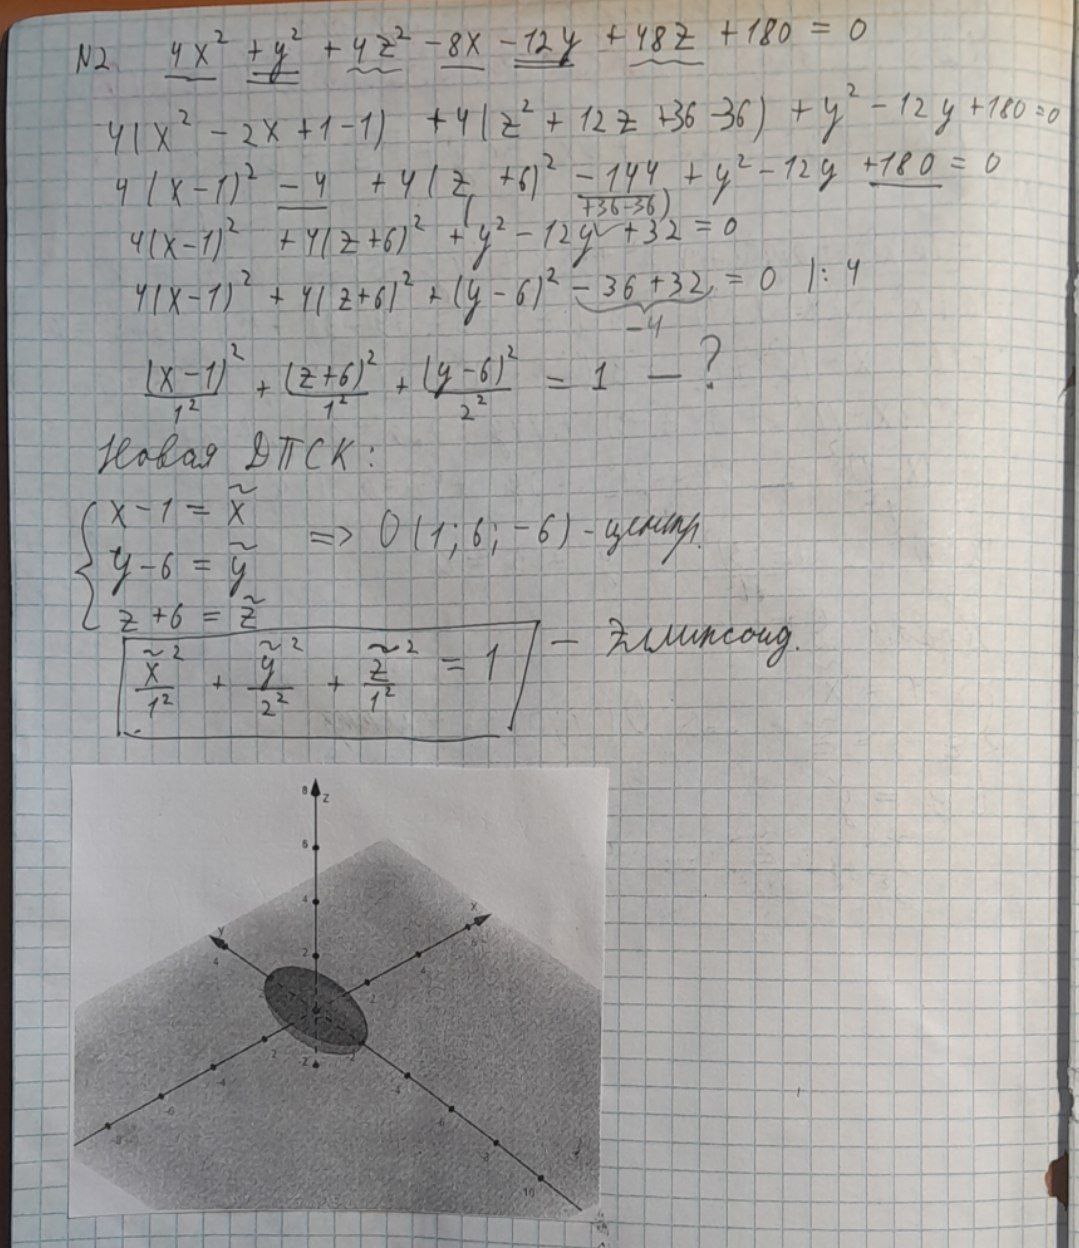 N2 4x² + y² + 4z² - 8x - 12y + 48z + 180 = 0
4(x² - 2x + 1 - 1) + 4(z² + 12z + 36 - 36) + y² - 12y + 180 = 0
4(x-1)² - 4 + 4(z + 6)² - 144 + y² - 12y + 180 = 0
+36-36)
4(x-1)² + 4(z+6)² + y² - 12y + 32 = 0
4(x-1)² + 4(z+6)² + (y-6)² - 36 + 32 = 0 |: 4
-4
(x-1)²/1² + (z+6)²/1² + (y-6)²/2² = 1 — ?
Новая ДПСК:
{ x - 1 = x̃
y - 6 = ỹ => O(1; 6; -6) - центр.
z + 6 = z̃
x̃²/1² + ỹ²/2² + z̃²/1² = 1 — Эллипсоид.
8 z
6
4
x
y 6
4 2 4
2
2 -2 2
-4 4
-6 6
-8 8
10